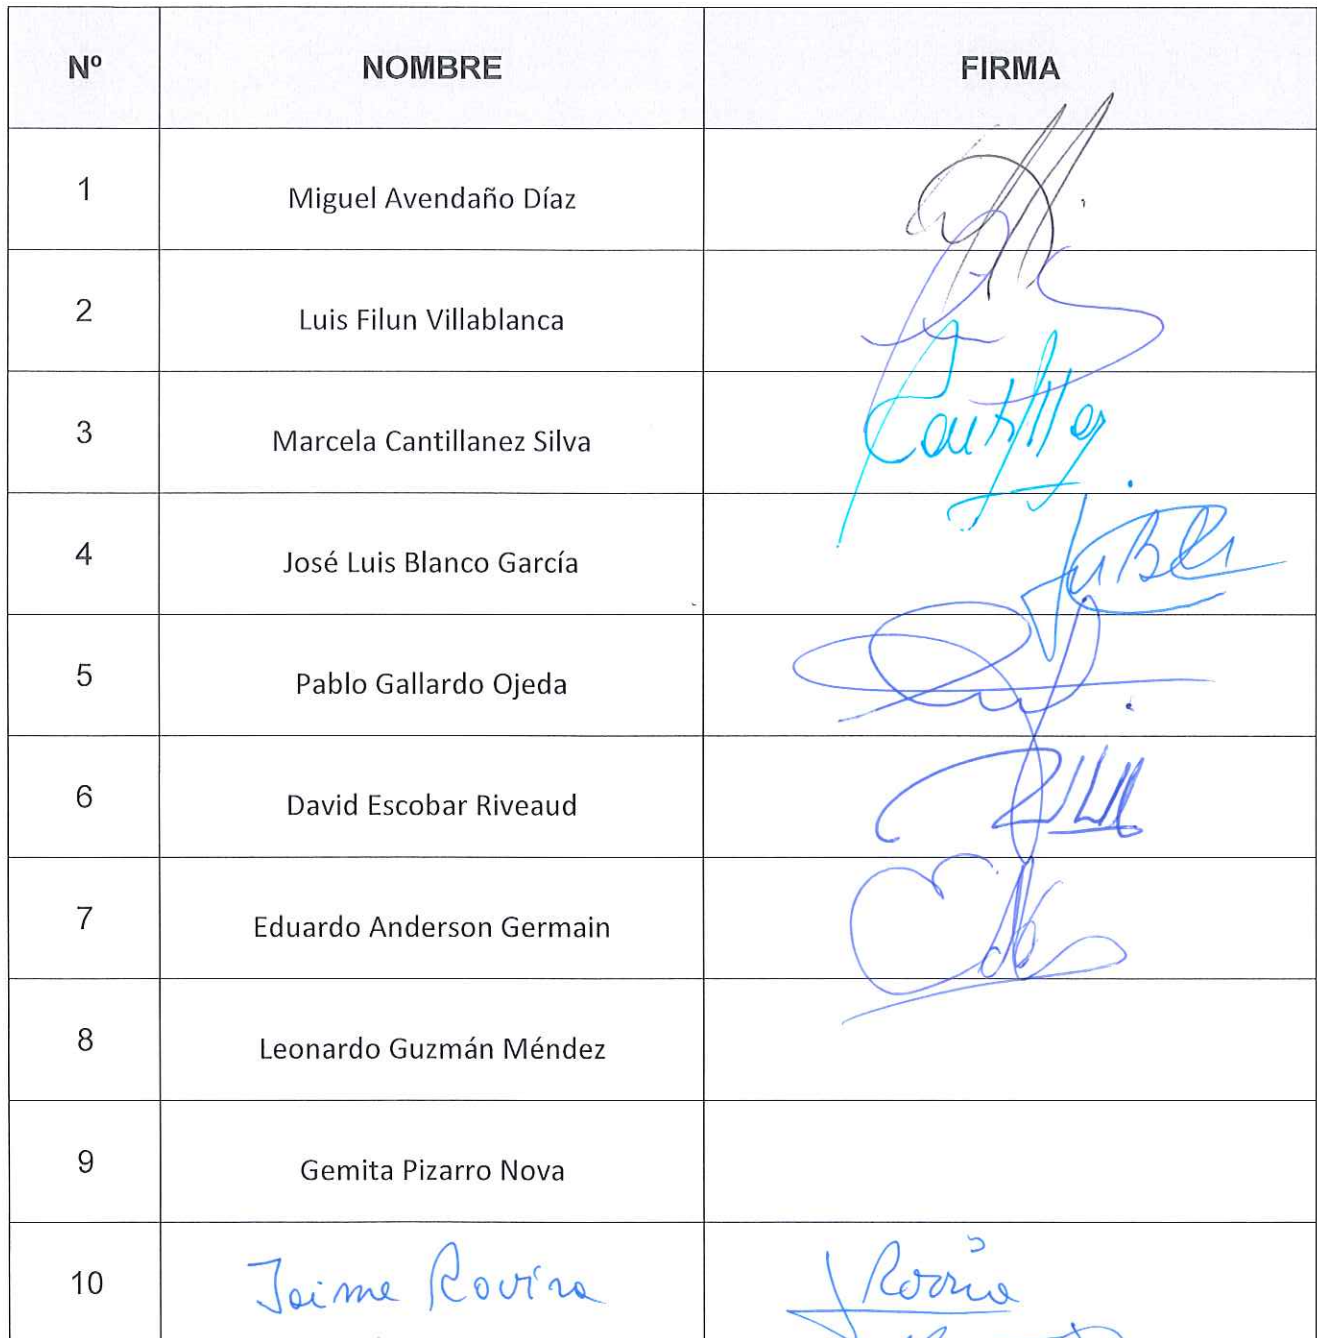 Nº NOMBRE FIRMA
1 Miguel Avendaño Díaz
2 Luis Filun Villablanca
3 Marcela Cantillanez Silva
4 José Luis Blanco García
5 Pablo Gallardo Ojeda
6 David Escobar Riveaud
7 Eduardo Anderson Germain
8 Leonardo Guzmán Méndez
9 Gemita Pizarro Nova
10 Jaime Rovira